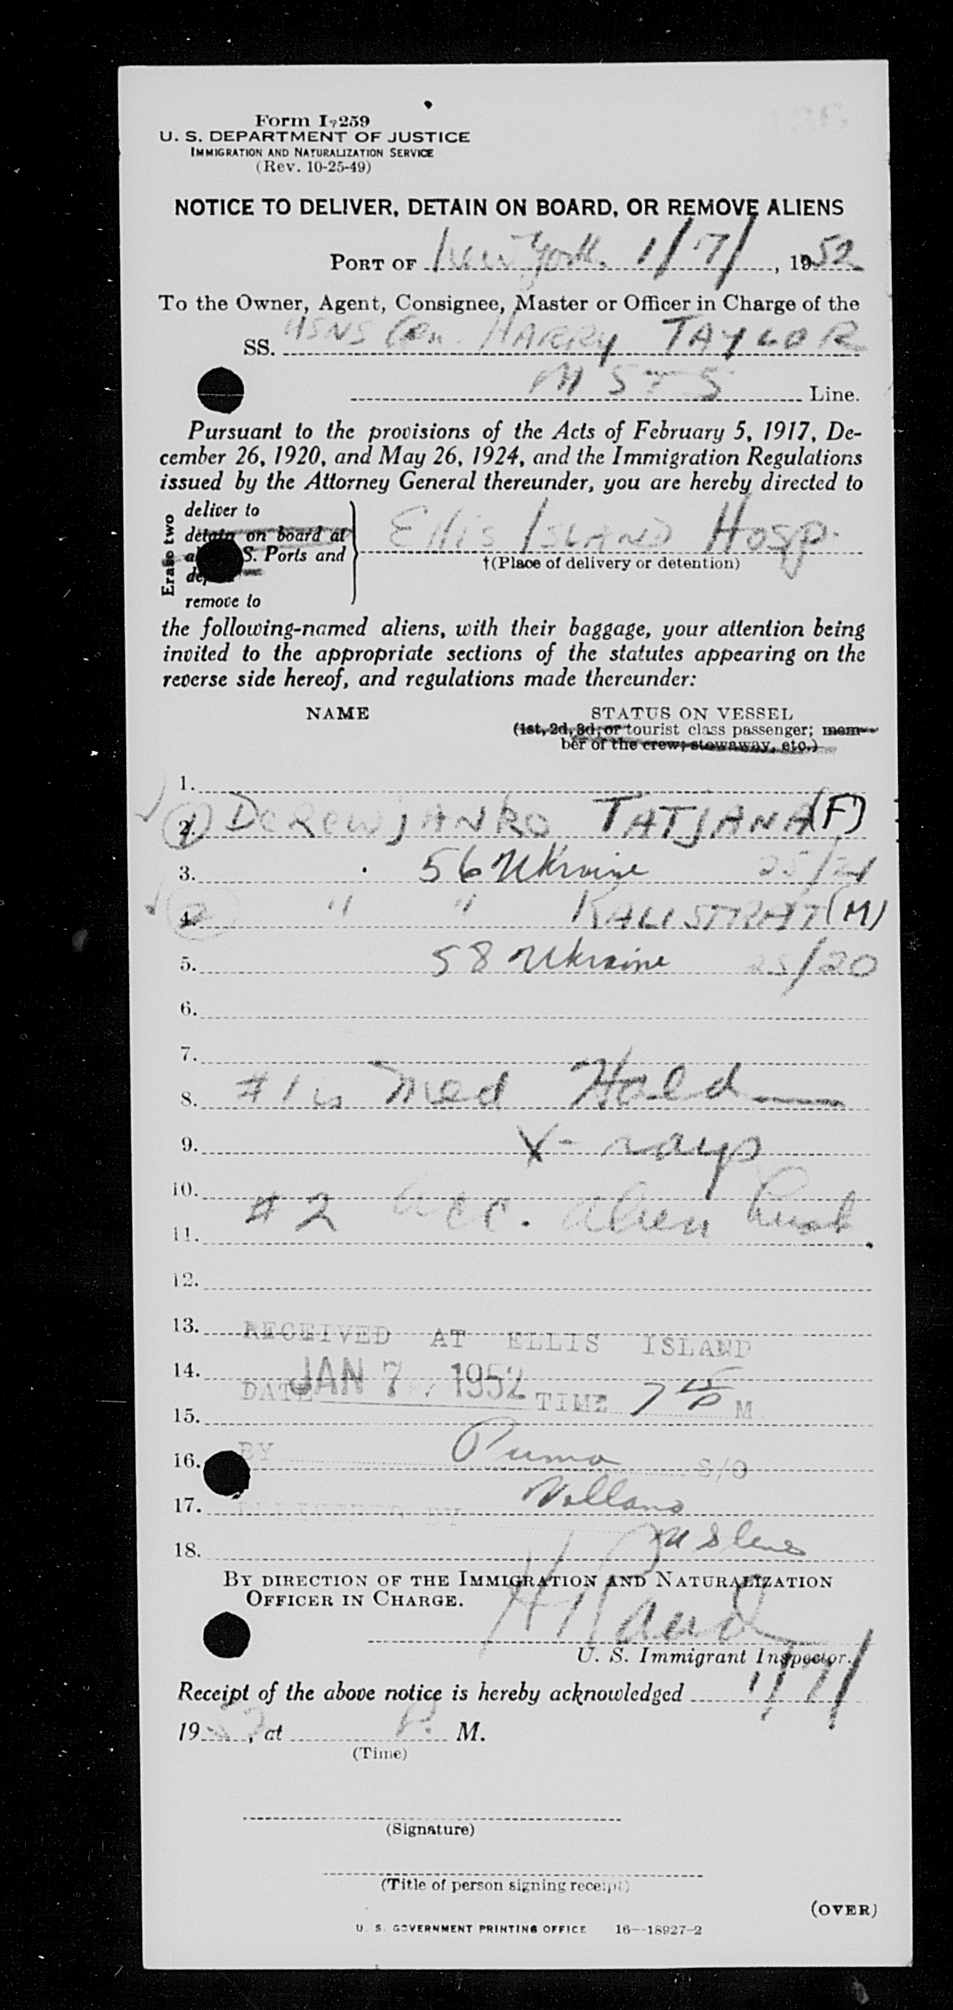 Form I-259
U. S. DEPARTMENT OF JUSTICE
IMMIGRATION AND NATURALIZATION SERVICE
(Rev. 10-25-49)
NOTICE TO DELIVER, DETAIN ON BOARD, OR REMOVE ALIENS
PORT OF New York. 1/7/, 1952
To the Owner, Agent, Consignee, Master or Officer in Charge of the
SS. USNS Gen. HARRY TAYLOR
MSTS Line.
Pursuant to the provisions of the Acts of February 5, 1917, De-
cember 26, 1920, and May 26, 1924, and the Immigration Regulations
issued by the Attorney General thereunder, you are hereby directed to
Erase two
deliver to
detain on board at
S. Ports and
remove to
Ellis Island Hosp.
†(Place of delivery or detention)
the following-named aliens, with their baggage, your attention being
invited to the appropriate sections of the statutes appearing on the
reverse side hereof, and regulations made thereunder:
NAME STATUS ON VESSEL
(1st, 2d, 3d, or tourist class passenger; mem-
ber of the crew; stowaway, etc.)
1.
2. DEREWJANKO TATJANA (F)
3. 56 Ukraine 25/21
4. " " KALISTRAT (M)
5. 58 Ukraine 25/20
6.
7.
8. #1 is Med Hold
9. X-rays
10.
11. #2 Acc. alien
12.
13. RECEIVED AT ELLIS ISLAND
14. DATE JAN 7 1952 TIME 7 45 P M
15.
16. BY Puma S/O
17.
18.
BY DIRECTION OF THE IMMIGRATION AND NATURALIZATION
OFFICER IN CHARGE.
U. S. Immigrant Inspector.
Receipt of the above notice is hereby acknowledged 1/7/
1952, at P. M.
(Time)
(Signature)
(Title of person signing receipt)
(OVER)
U. S. GOVERNMENT PRINTING OFFICE 16—18927-2